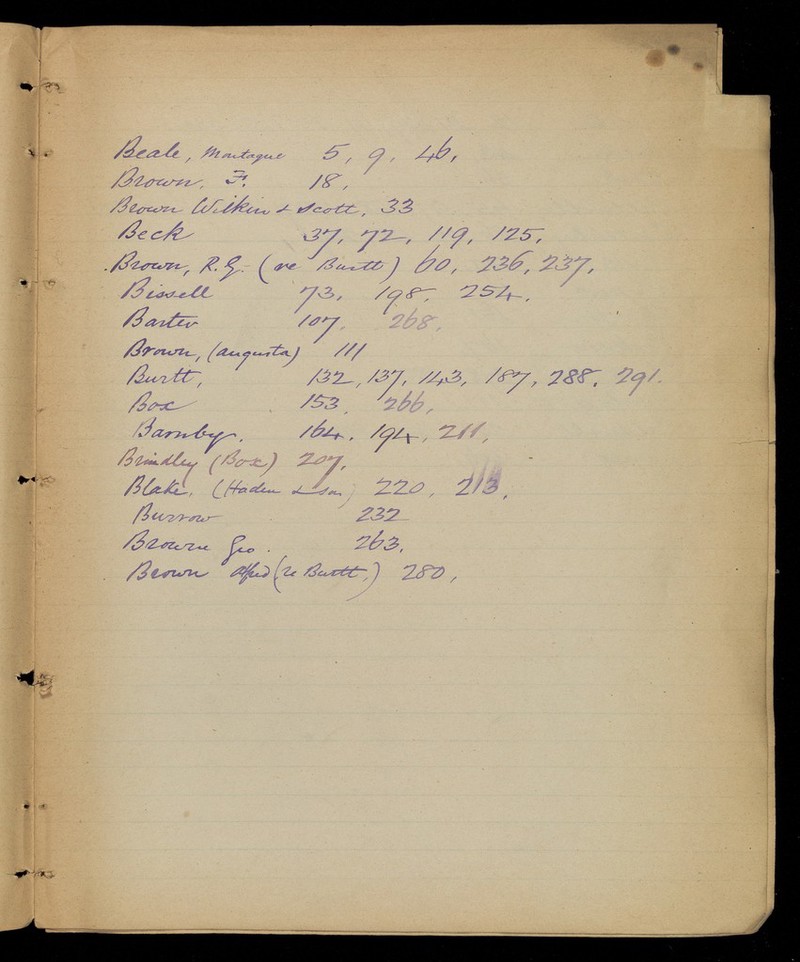 Beale, Montague 5, 9, 46,
Brown, F. 18,
Brown Wilkin & Scott, 33
Beck 37, 72, 119, 125,
Brown, R.G. (re Burtt) 60, 236, 237,
Bissell 73, 198, 254,
Barter 107, 268,
Brown, (Augusta) 111
Burtt, 132, 137, 143, 187, 288, 291.
Box 153, 266,
Barnby. 164, 194, 211,
Brindley (Box) 207,
Blake, (Haden & Son) 220, 213,
Burrow 232
Browne Geo. 263,
Brown Alfred (re Burtt,) 280,